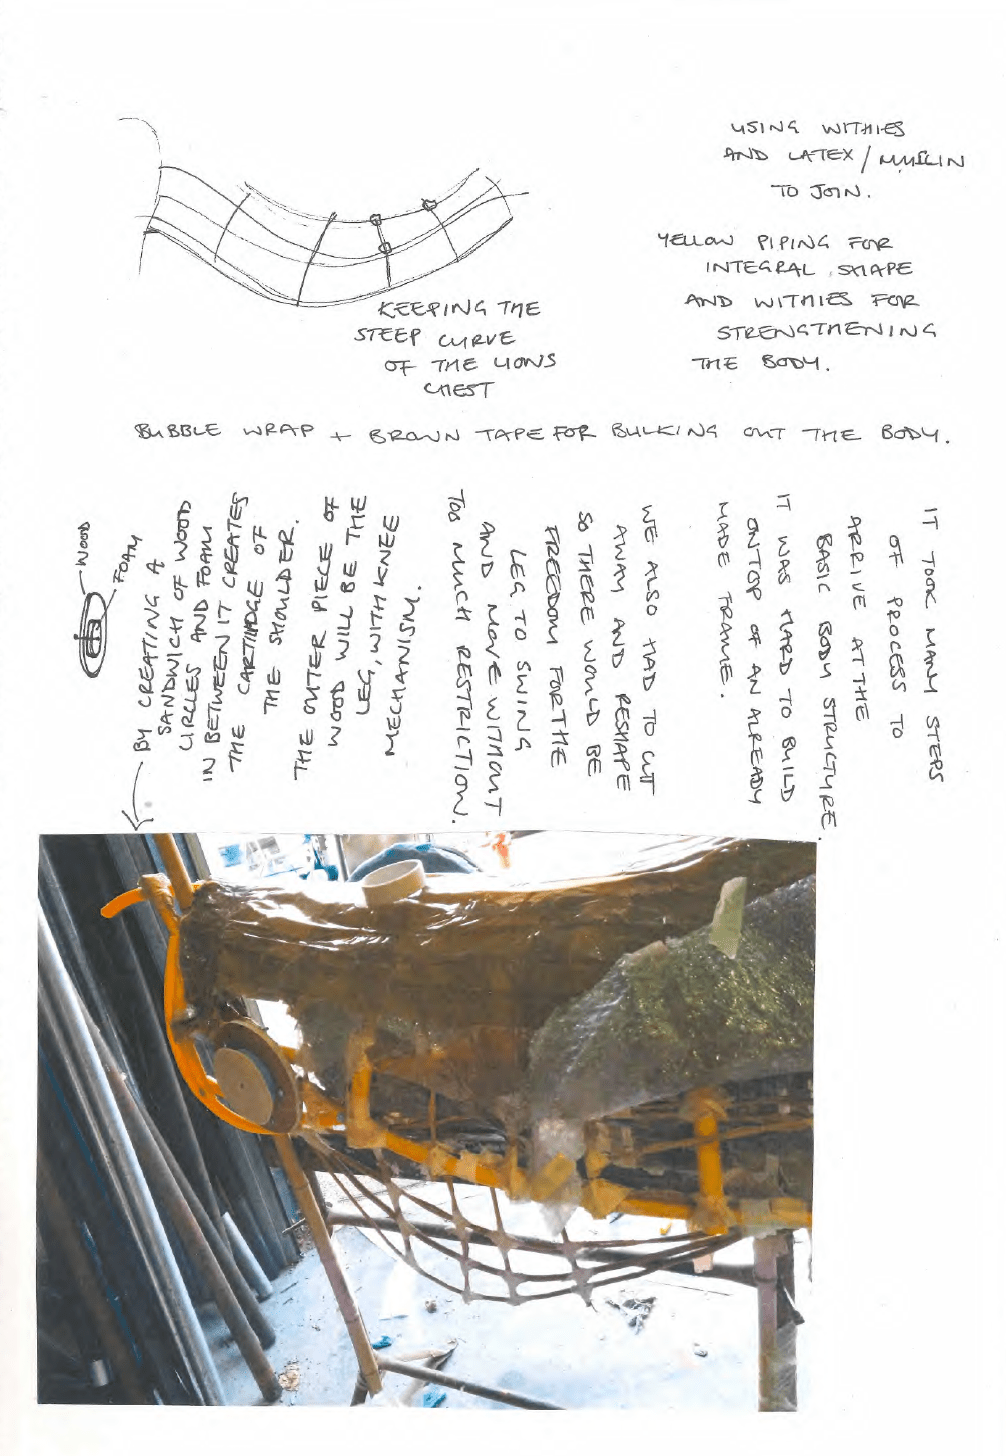 USING WITHIES
AND LATEX / MUSLIN
TO JOIN.
YELLOW PIPING FOR
INTEGRAL SHAPE
AND WITHIES FOR
STRENGTHENING
THE BODY.
KEEPING THE
STEEP CURVE
OF THE LIONS
CHEST
BUBBLE WRAP + BROWN TAPE FOR BULKING OUT THE BODY.
IT TOOK MANY STEPS
OF PROCESS TO
ARRIVE AT THE
BASIC BODY STRUCTURE.
IT WAS HARD TO BUILD
ONTOP OF AN ALREADY
MADE FRAME.
WE ALSO HAD TO CUT
AWAY AND RESHAPE
SO THERE WOULD BE
FREEDOM FOR THE
LEG TO SWING
AND MOVE WITHOUT
TOO MUCH RESTRICTION.
WOOD
FOAM
BY CREATING A
SANDWICH OF WOOD
CIRCLES AND FOAM
IN BETWEEN IT CREATES
THE CARTILIDGE OF
THE SHOULDER.
THE OUTER PIECE OF
WOOD WILL BE THE
LEG, WITH KNEE
MECHANISM.